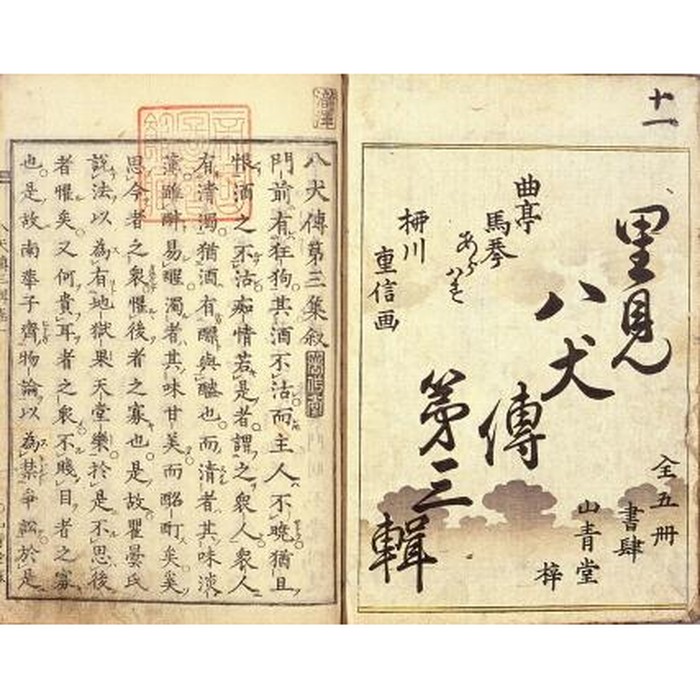 十一
里見
八犬
傳
第三
輯
曲亭
馬琴
あらはす
柳川
重信画
全五冊
書肆
山青堂
梓
八犬傳第三集敘
門前有狂狗其酒不沽而主人不曉猶且
恨酒之不沽痴情若是者謂之衆人衆人
有清濁猶酒有醨與醯也而清者其味淡
薄雖醉易醒濁者其味甘美而酩酊矣奚
思今者之衆懼後者之寡也是故瞿曇氏
說法以為有地獄果天堂樂於是不思後
者懼矣又何貴耳者之衆不賤目者之寡
也是故南華子齊物論以為禁爭訟於是